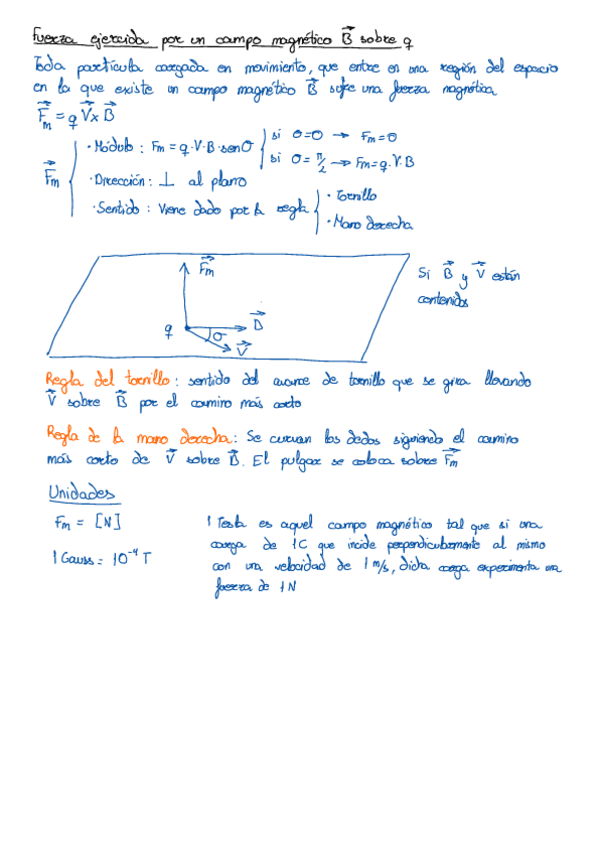 Fuerza ejercida por un campo magnético B⃗ sobre q
Toda partícula cargada en movimiento, que entre en una región del espacio
en la que existe un campo magnético B⃗ sufre una fuerza magnética
F⃗m = q V⃗ x B⃗
F⃗m
· Módulo : Fm = q · V · B · sen σ
si σ=0 → Fm = 0
si σ = π/2 → Fm = q · V · B
· Dirección : ⊥ al plano
· Sentido : Viene dado por la regla
· Tornillo
· Mano derecha
F⃗m
q
B⃗
σ
V⃗
Si B⃗ y V⃗ están
contenidos
Regla del tornillo : sentido del avance de tornillo que se gira llevando
V⃗ sobre B⃗ por el camino más corto
Regla de la mano derecha : Se curvan los dedos siguiendo el camino
más corto de V⃗ sobre B⃗. El pulgar se coloca sobre F⃗m
Unidades
Fm = [N]
1 Gauss = 10⁻⁴ T
1 Tesla es aquel campo magnético tal que si una
carga de 1C que incide perpendicularmente al mismo
con una velocidad de 1 m/s, dicha carga experimenta una
fuerza de 1N